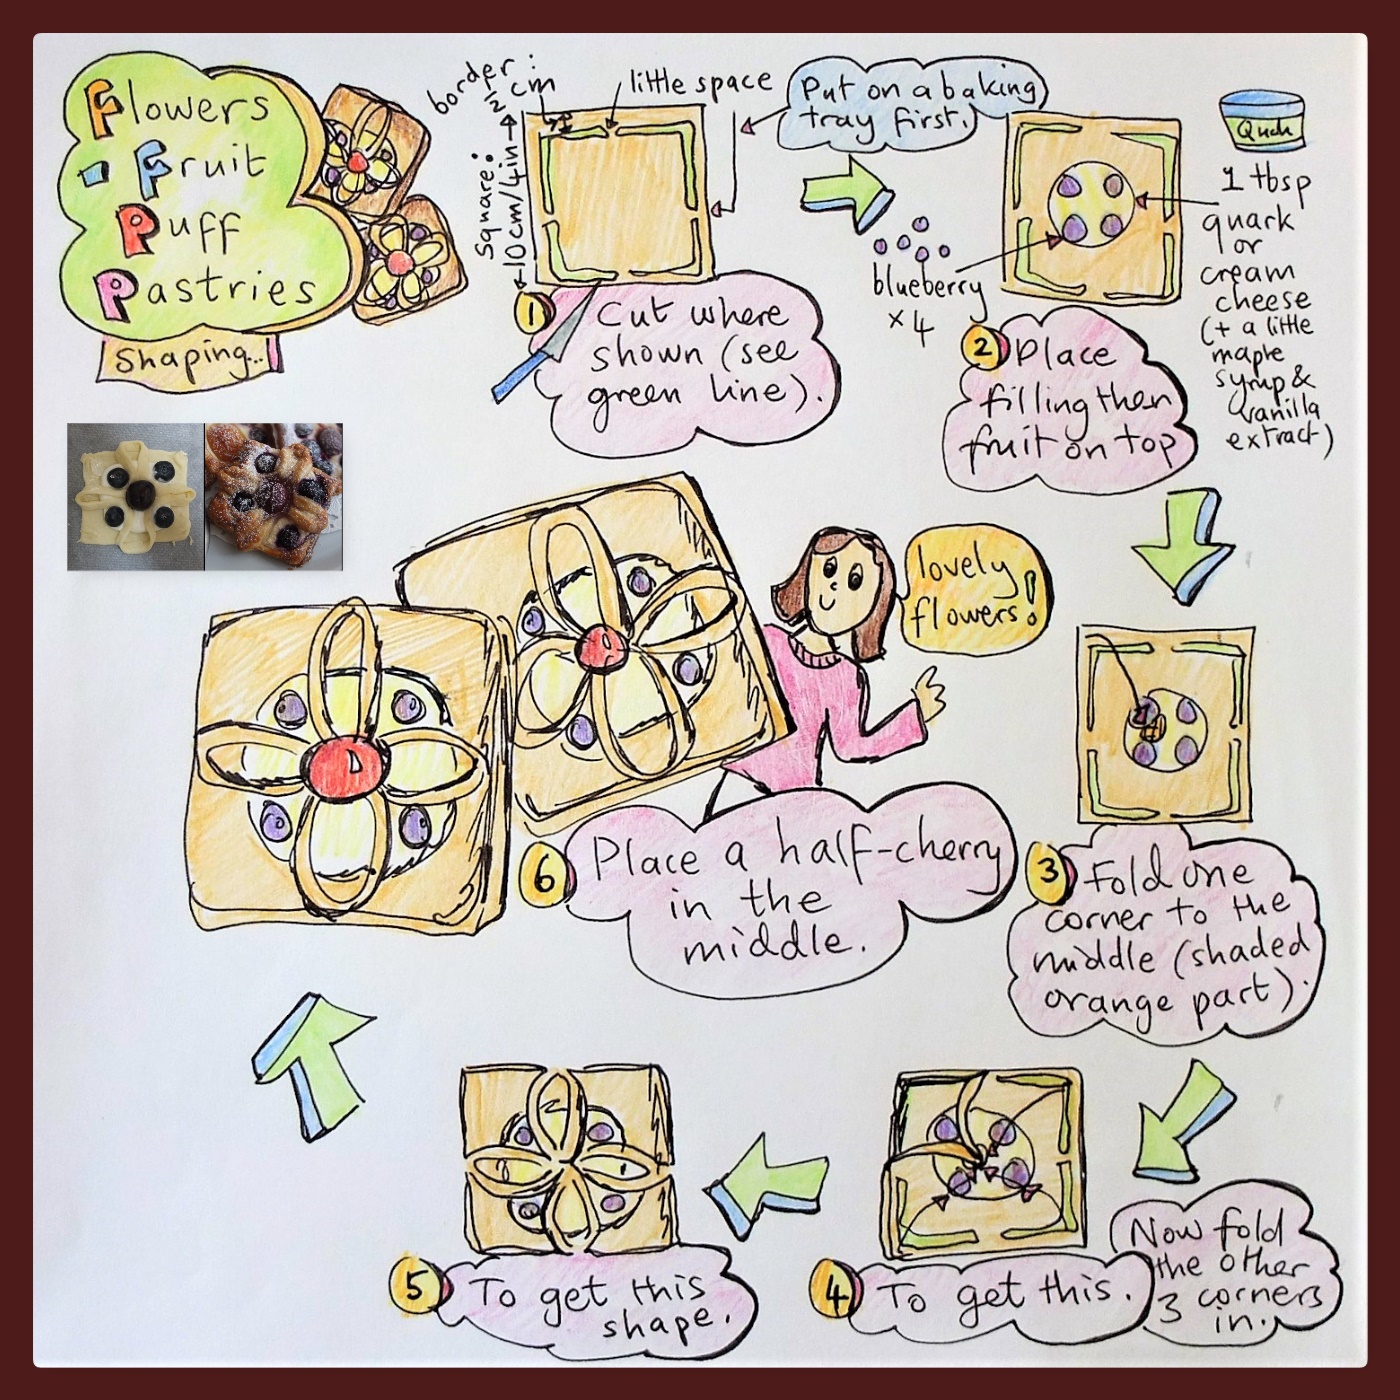 Flowers
- Fruit
Puff
Pastries
Shaping...
border:
½ cm
little space
Square:
10cm/4in
Put on a baking
tray first.
1
Cut where
shown (see
green line).
blueberry
x 4
Quark
1 tbsp
quark
or
cream
cheese
(+ a little
maple
syrup &
vanilla
extract)
2
Place
filling then
fruit on top
3
Fold one
corner to the
middle (shaded
orange part).
Now fold
the other
3 corners
in.
4
To get this.
5
To get this
shape.
6
Place a half-cherry
in the
middle.
lovely
flowers!